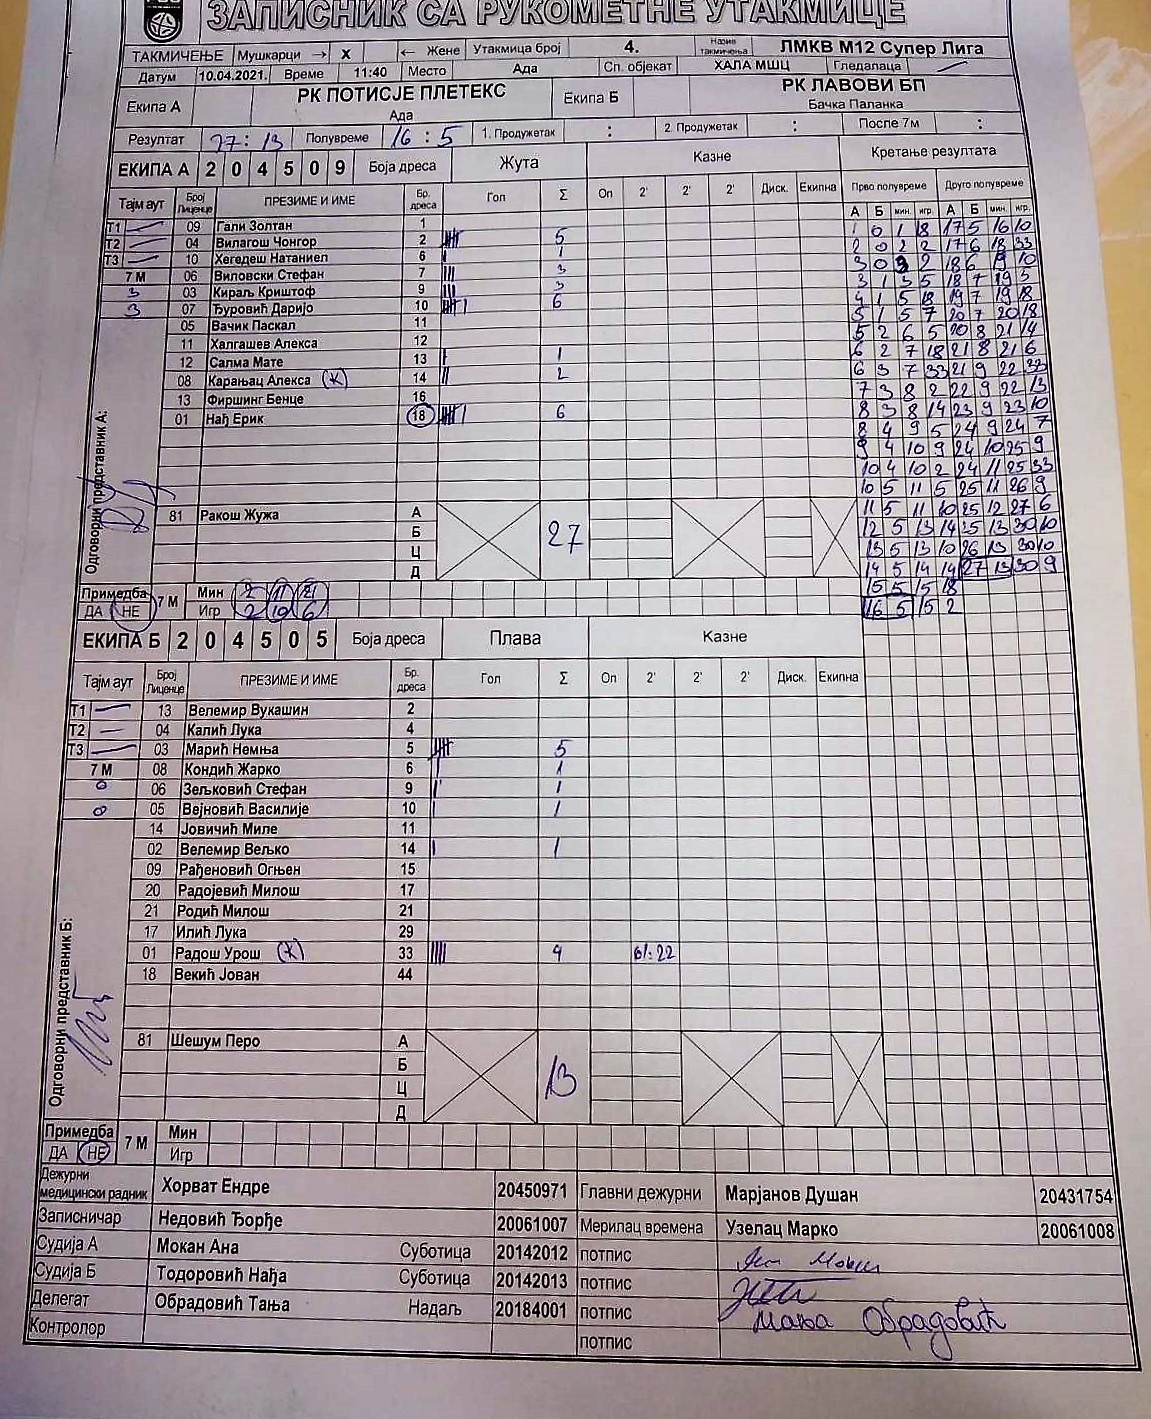 ЗАПИСНИК СА РУКОМЕТНЕ УТАКМИЦЕ
ТАКМИЧЕЊЕ Мушкарци → X ← Жене Утакмица број 4. Назив такмичења ЛМКВ М12 Супер Лига
Датум 10.04.2021. Време 11:40 Место Ада Сп. објекат ХАЛА МШЦ Гледалаца
Екипа А РК ПОТИСЈЕ ПЛЕТЕКС Ада Екипа Б РК ЛАВОВИ БП Бачка Паланка
Резултат 27:13 Полувреме 16:5 1. Продужетак : 2. Продужетак : После 7м :
ЕКИПА А 2 0 4 5 0 9 Боја дреса Жута Казне Кретање резултата
Тајм аут Број Лиценце ПРЕЗИМЕ И ИМЕ Бр. дреса Гол Σ Оп 2' 2' 2' Диск. Екипна Прво полувреме Друго полувреме
А Б мин. игр. А Б мин. игр.
Т1 09 Гали Золтан 1
Т2 04 Вилагош Чонгор 2 5
Т3 10 Хегедеш Натаниел 6 1
7 М 06 Виловски Стефан 7 3
3 03 Кираљ Криштоф 9 3
3 07 Ђуровић Даријо 10 6
05 Вачик Паскал 11
11 Халгашев Алекса 12
12 Салма Мате 13 1
08 Карањац Алекса (К) 14 2
13 Фиршинг Бенце 16
01 Нађ Ерик 18 6
1 0 1 18 17 5 16 10
2 0 2 2 17 6 18 33
3 0 3 2 18 6 19 10
3 1 3 5 18 7 19 5
4 1 5 18 19 7 19 18
5 1 5 7 20 7 20 18
5 2 6 5 20 8 21 14
6 2 7 18 21 8 21 6
6 3 7 33 21 9 22 33
7 3 8 2 22 9 22 13
8 3 8 14 23 9 23 10
8 4 9 5 24 9 24 7
9 4 10 9 24 10 25 9
10 4 10 2 24 11 25 33
10 5 11 5 25 11 26 9
11 5 11 10 25 12 27 6
12 5 13 14 25 13 30 10
13 5 13 10 26 13 30 10
14 5 14 14 27 13 30 9
15 5 15 18
16 5 15 2
Одговорни представник А:
81 Ракош Жужа А 27
Б
Ц
Д
Примедба ДА НЕ 7 М Мин 2 11 21
Игр 2 10 6
ЕКИПА Б 2 0 4 5 0 5 Боја дреса Плава Казне
Тајм аут Број Лиценце ПРЕЗИМЕ И ИМЕ Бр. дреса Гол Σ Оп 2' 2' 2' Диск. Екипна
Т1 13 Велемир Вукашин 2
Т2 04 Калић Лука 4
Т3 03 Марић Немња 5 5
7 М 08 Кондић Жарко 6 1
0 06 Зељковић Стефан 9 1
0 05 Вејновић Василије 10 1
14 Јовичић Миле 11
02 Велемир Вељко 14 1
09 Рађеновић Огњен 15
20 Радојевић Милош 17
21 Родић Милош 21
17 Илић Лука 29
01 Радош Урош (К) 33 4
18 Векић Јован 44
Одговорни представник Б:
81 Шешум Перо А 13
Б
Ц
Д
Примедба ДА НЕ 7 М Мин
Игр
Дежурни медицински радник Хорват Ендре 20450971 Главни дежурни Марјанов Душан 20431754
Записничар Недовић Ђорђе 20061007 Мерилац времена Узелац Марко 20061008
Судија А Мокан Ана Суботица 20142012 потпис
Судија Б Тодоровић Нађа Суботица 20142013 потпис
Делегат Обрадовић Тања Надаљ 20184001 потпис Обрадовић
Контролор потпис